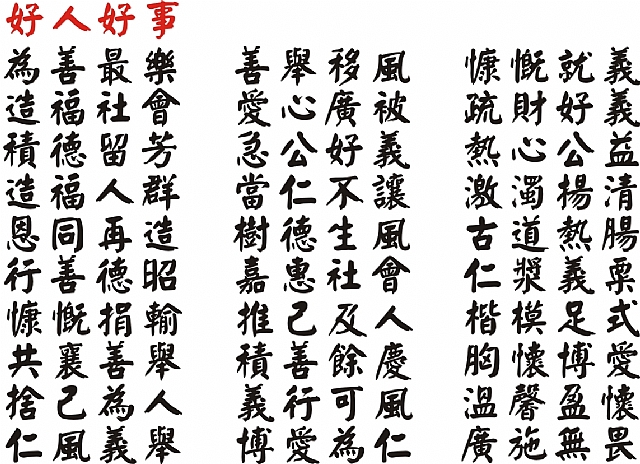 好人好事
為善最樂
造福社會
積德留芳
造福人群
恩同再造
行善德昭
慷慨捐輸
共襄善舉
捨己為人
仁風義舉
善舉移風
愛心廣被
急公好義
當仁不讓
樹德生風
嘉惠社會
推己及人
積善餘慶
義行可風
博愛為仁
慷慨就義
疏財好義
熱心公益
激濁揚清
古道熱腸
仁漿義粟
楷模足式
胸懷博愛
溫馨盈懷
廣施無畏